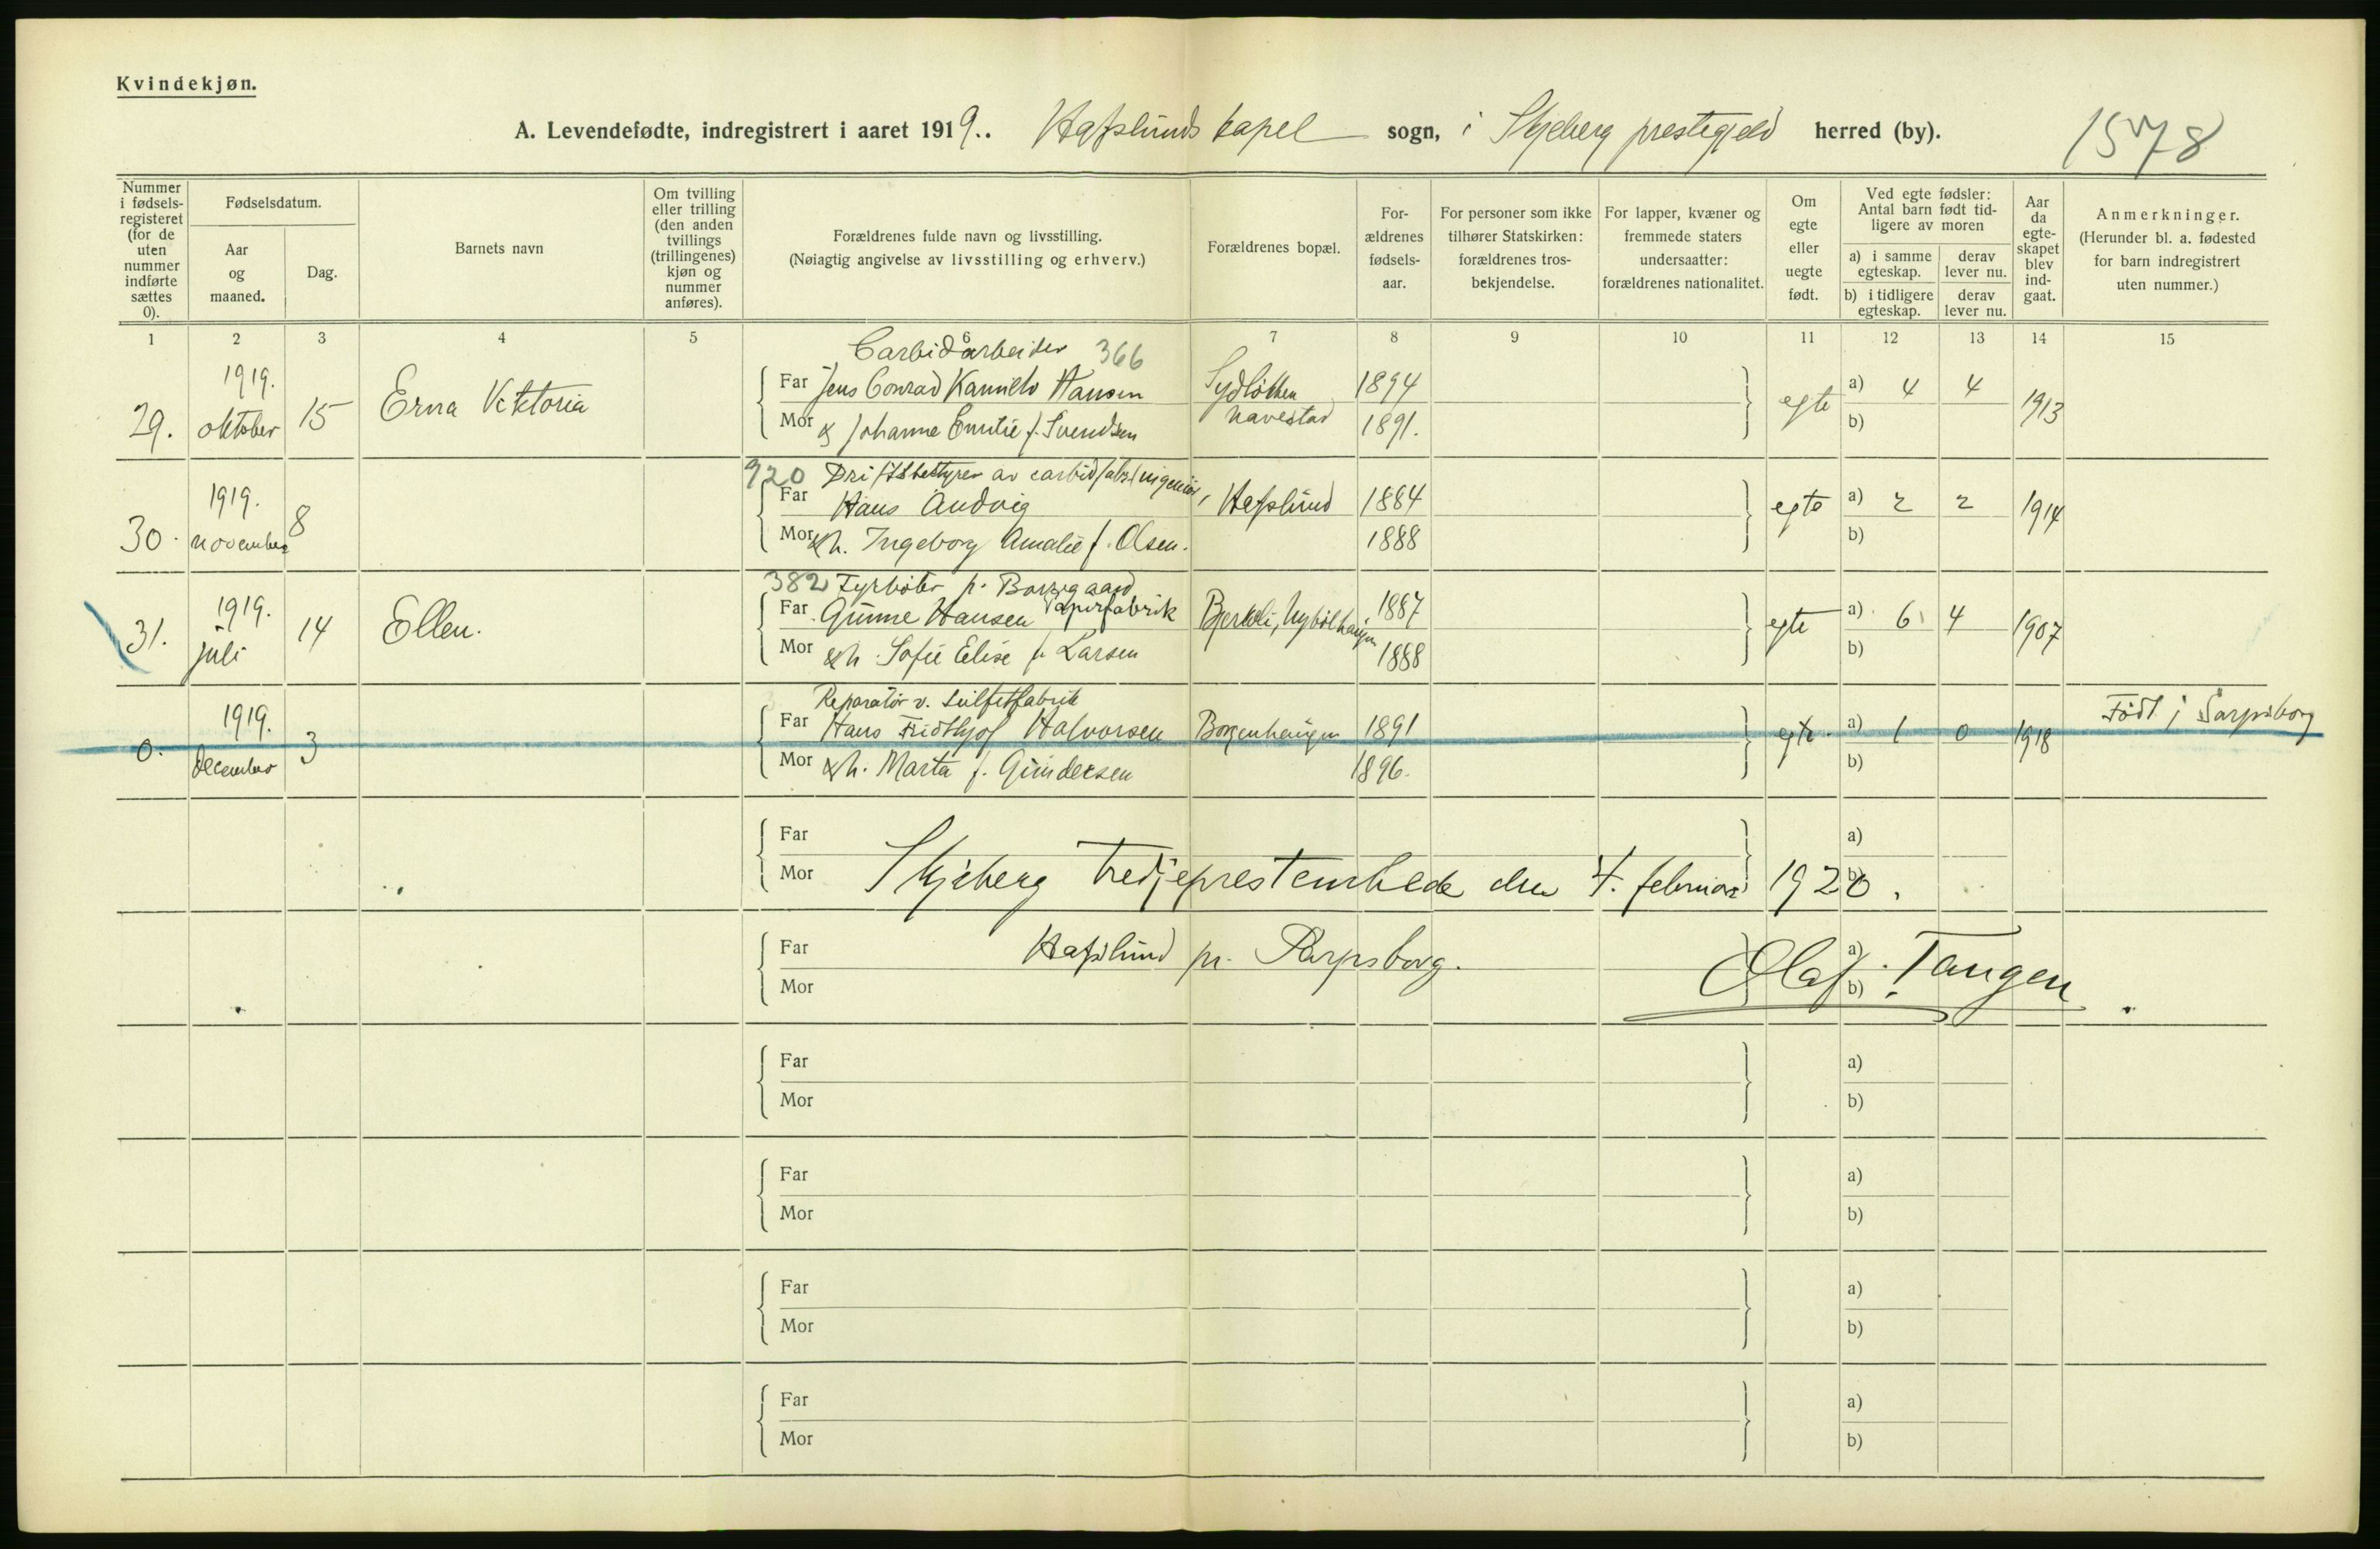 Kvindekjøn.
A. Levendefødte, indregistrert i aaret 1919.. Hafslunds kapel sogn, i Skjeberg prestegjeld herred (by). 1578
Nummer i fødsels-registeret (for de uten nummer indførte sættes 0).
Fødselsdatum.
Aar og maaned.
Dag.
Barnets navn
Om tvilling eller trilling (den anden tvillings (trillingenes) kjøn og nummer anføres).
Forældrenes fulde navn og livsstilling.
(Nøiagtig angivelse av livsstilling og erhverv.)
Forældrenes bopæl.
For-ældrenes fødsels-aar.
For personer som ikke tilhører Statskirken: forældrenes tros-bekjendelse.
For lapper, kvæner og fremmede staters undersaatter: forældrenes nationalitet.
Om egte eller uegte født.
Ved egte fødsler: Antal barn født tid-ligere av moren
a) i samme egteskap.
derav lever nu.
b) i tidligere egteskap.
derav lever nu.
Aar da egte-skapet blev ind-gaat.
Anmerkninger.
(Herunder bl. a. fødested for barn indregistrert uten nummer.)
1 2 3 4 5 6 7 8 9 10 11 12 13 14 15
Carbidarbeider 366
29. 1919. oktober 15 Erna Viktoria
Far Jens Conrad Hansen 1894
Mor & Johanne Emilie f. Svendsen Navestad 1891.
egte a) 4 4 b) 1913
920 Driftsbestyrer av carbidfabr. ingeniør,
30. 1919. november 8
Far Hans Andvig Hafslund 1884
Mor &h. Ingeborg Amalie f. Olsen. 1888
egte a) 2 2 b) 1914
382 Fyrbøter p. Borregaard Papirfabrik
31. 1919. juli 14 Ellen.
Far Gunne Hansen 1887
Mor &h. Sofie Elise f. Larsen 1888
egte a) 6 4 b) 1907
Reparatør v. Sulfitfabrik
0. 1919. december 3
Far Hans Fridthjof Halvorsen Borgenhaugen 1891
Mor &h. Marta f. Gundersen 1896.
egte. a) 1 0 b) 1918 Født i Sarpsborg
Far a)
Mor b)
Skjeberg tredjeprestembede den 4. februar 1920.
Far a)
Mor b)
Hafslund pr. Sarpsborg. Olaf Tangen.
Far a)
Mor b)
Far a)
Mor b)
Far a)
Mor b)
Far a)
Mor b)